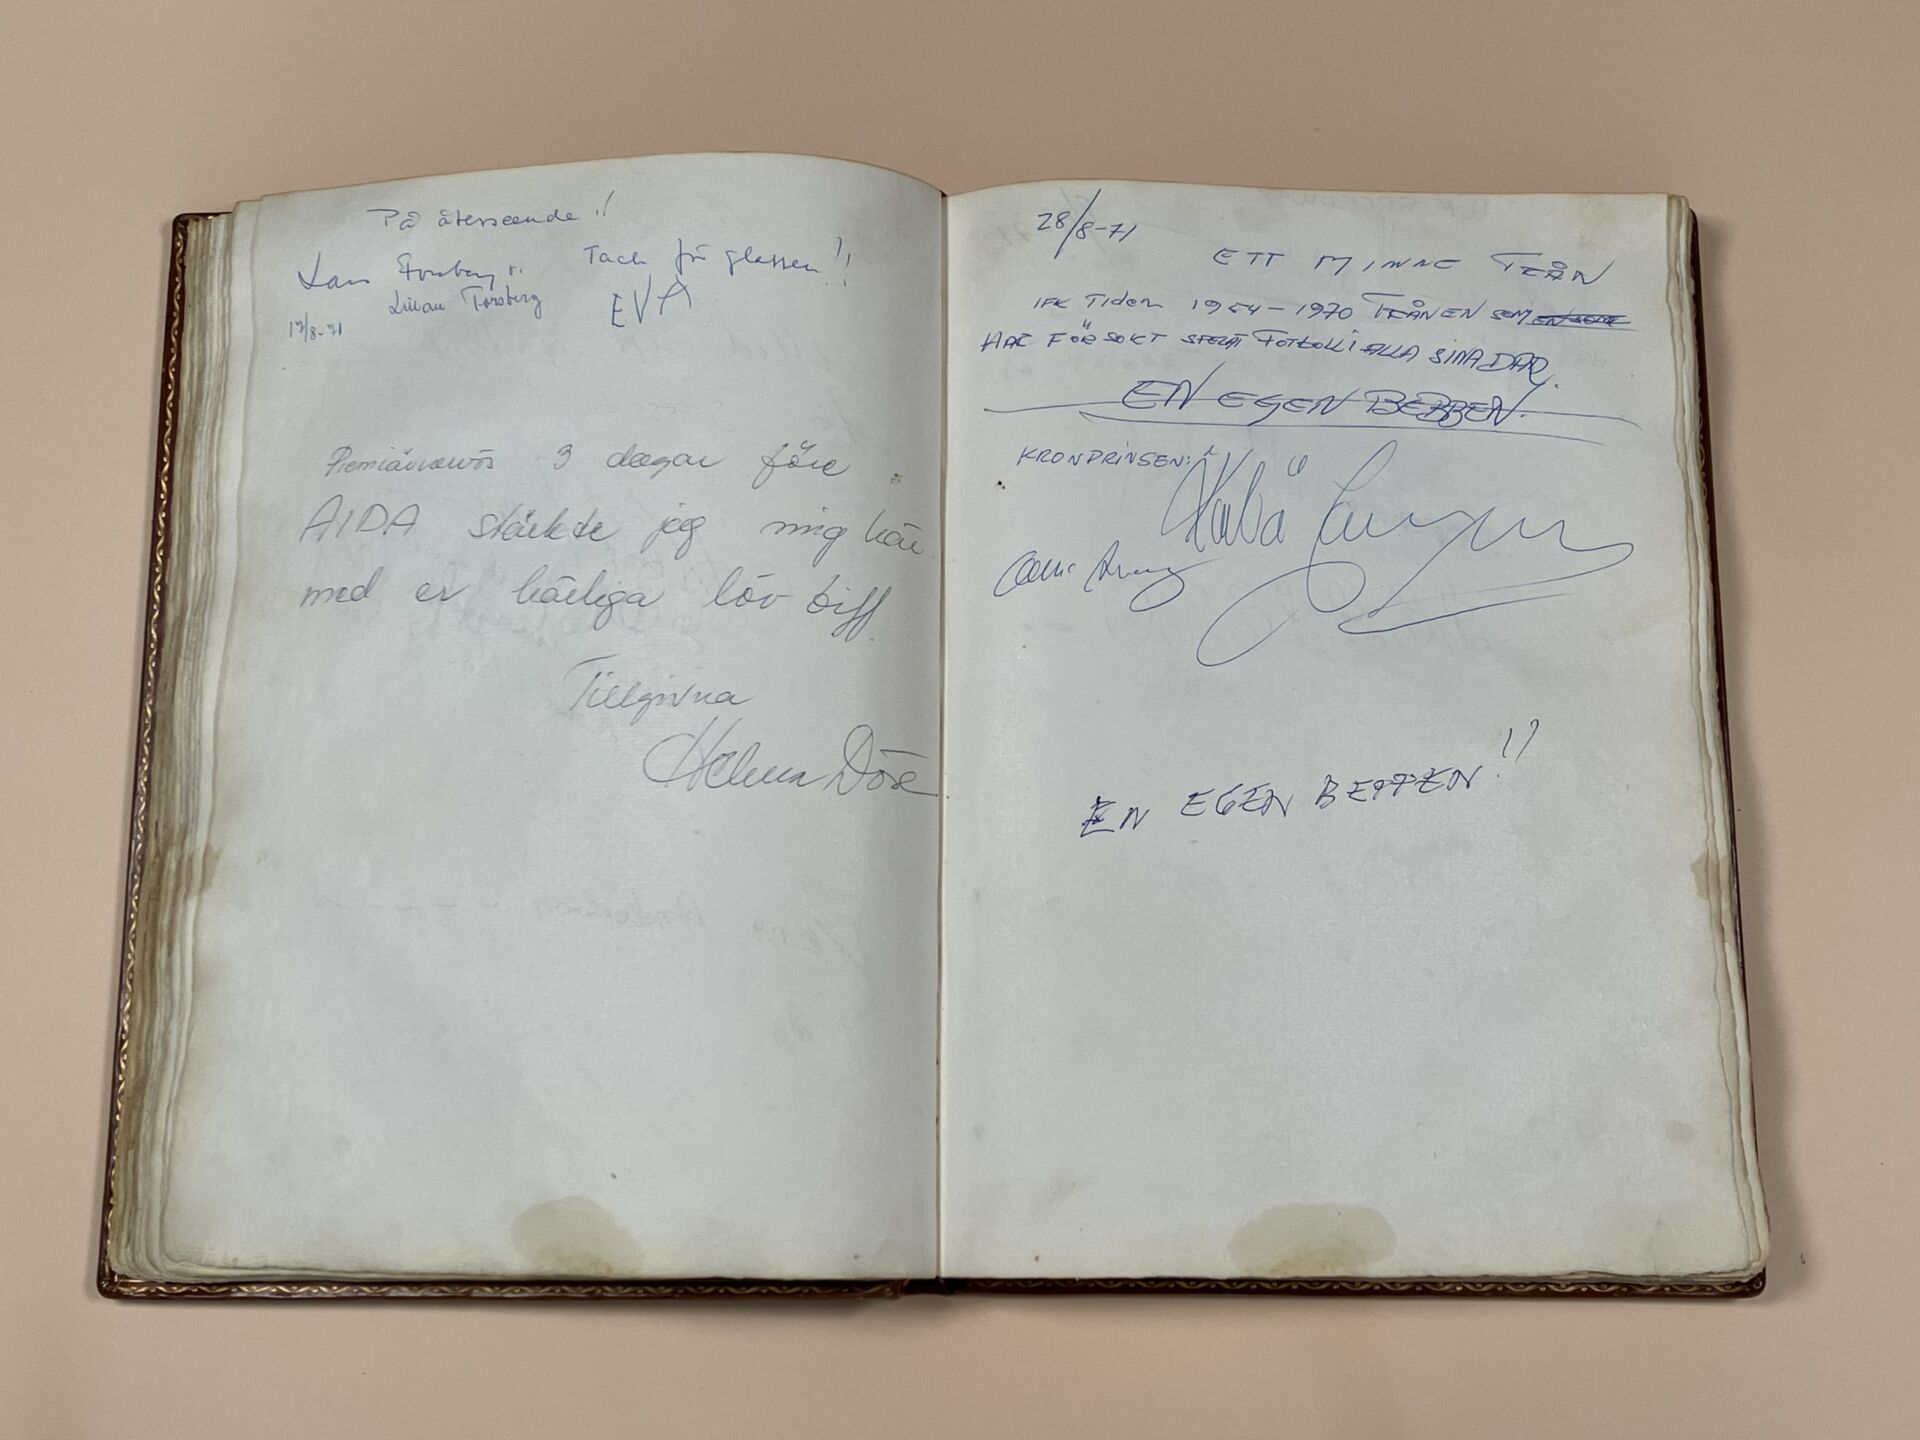 På återseende !!
Lars Forsberg Tack för glassen!!
Lillian Forsberg EVA
17/8-71
Premiärnervös 3 dagar före
AIDA stärkte jag mig här
med er härliga löv biff.
Tillgivna
Helena Döse
28/8-71
ETT MINNE FRÅN
IFK Tiden 1954-1970 FRÅN EN SOM
HAR FÖRSÖKT SPELAT FOTBOLL I ALLA SINA DAR.
EN EGEN BEBBEN.
KRONPRINSEN:
EN EGEN BEPPEN!!